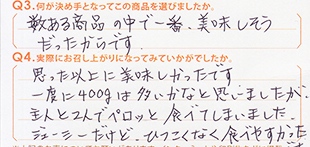 Q3.何が決め手となってこの商品を選びましたか。
数ある商品の中で一番、美味しそう
だったからです。
Q4.実際にお召し上がりになってみていかがでしたか。
思った以上に美味しかったです
一度に400gは多いかなと思いましたが、
主人と2人でペロッと食べてしまいました。
ジューシーだけど、ひつこくなく食べやすかった
です